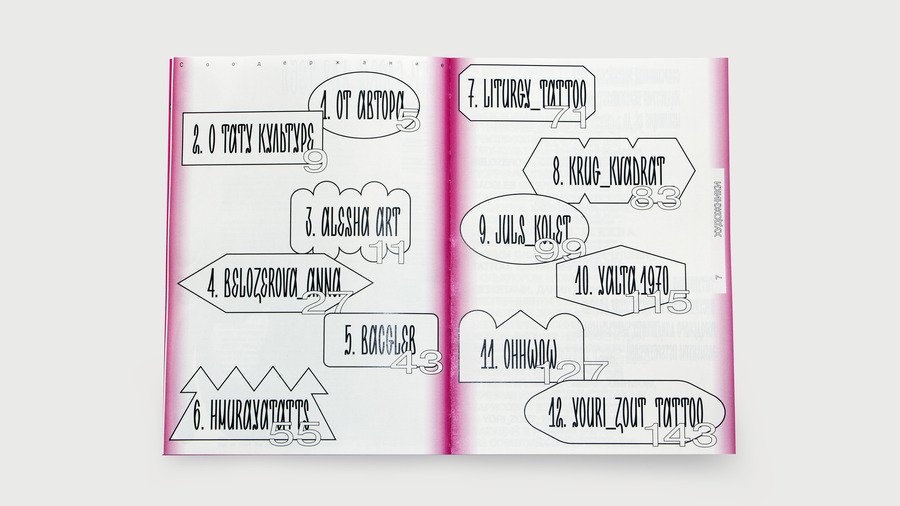 Содержание
1. ОТ АВТОРА
5
2. О ТАТУ КУЛЬТУРЕ
9
3. ALESHA ART
11
4. BELOZEROVA_ANNA
27
5. BACGLEB
43
6. HMURAYATATTS
55
7. LITURGY_TATTOO
71
8. KRUG_KVADRAT
83
9. JULS_KOLET
99
10. YALTA 1970
115
11. OHHWOW
127
12. YOURI_ZOUT_TATTOO
143
ХУДОЖНИКИ
7